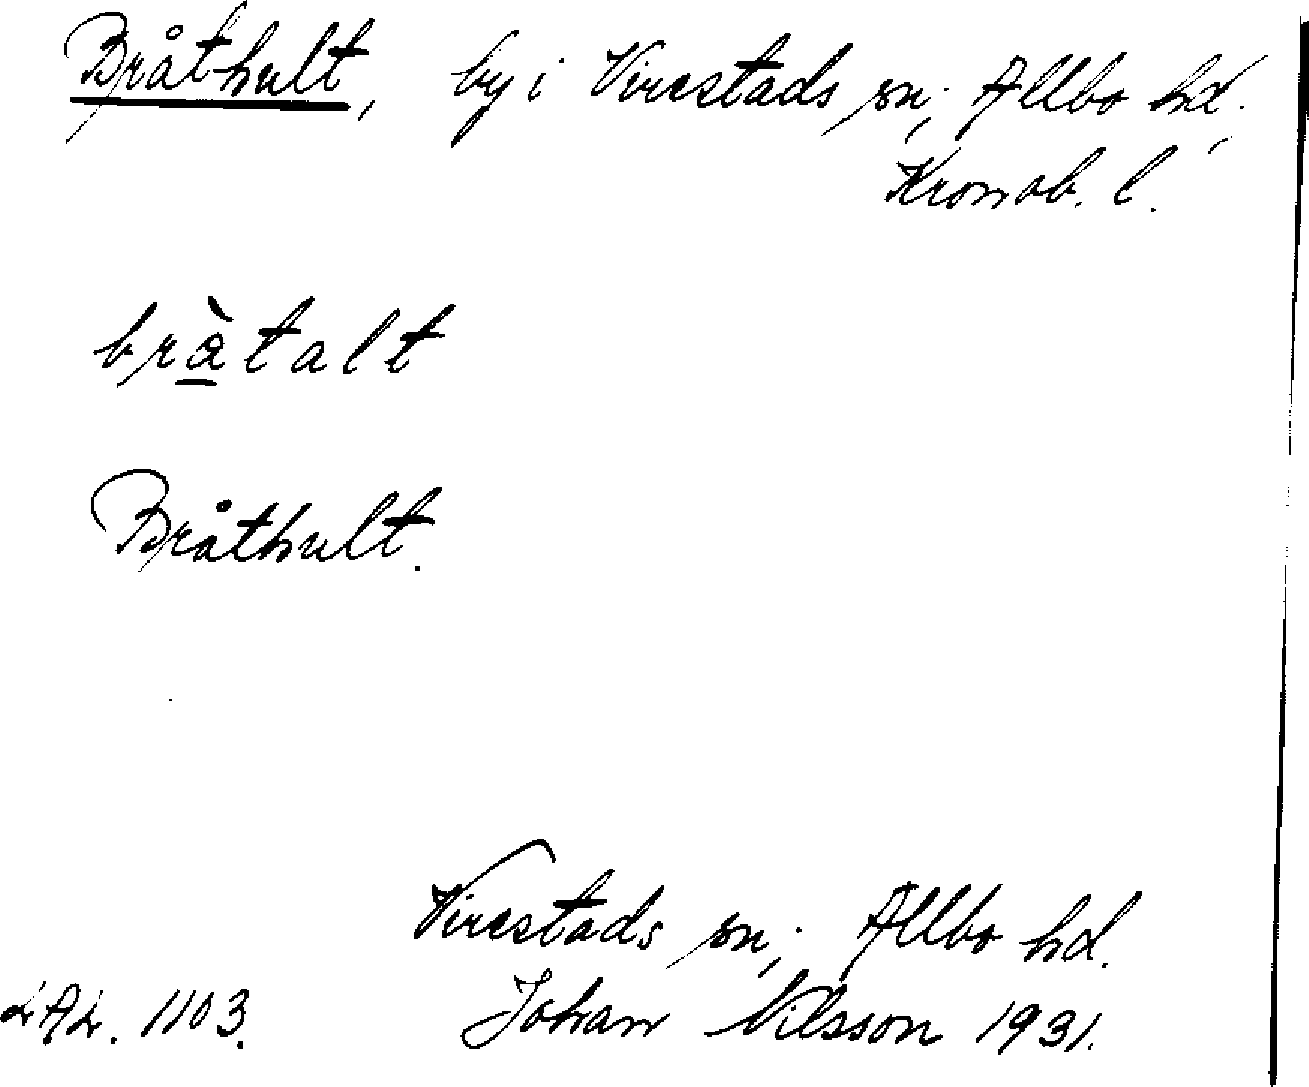 Bråthult, by i Virestads sn; Allbo hd.,
Kronob. l.
bràtalt
Bråthult.
Virestads sn; Allbo hd.
LAL. 1103. Johan Nilsson 1931.